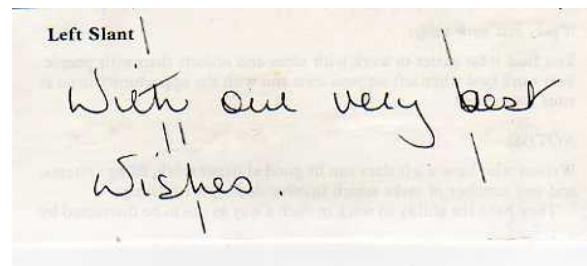 Left Slant
With our very best
Wishes.